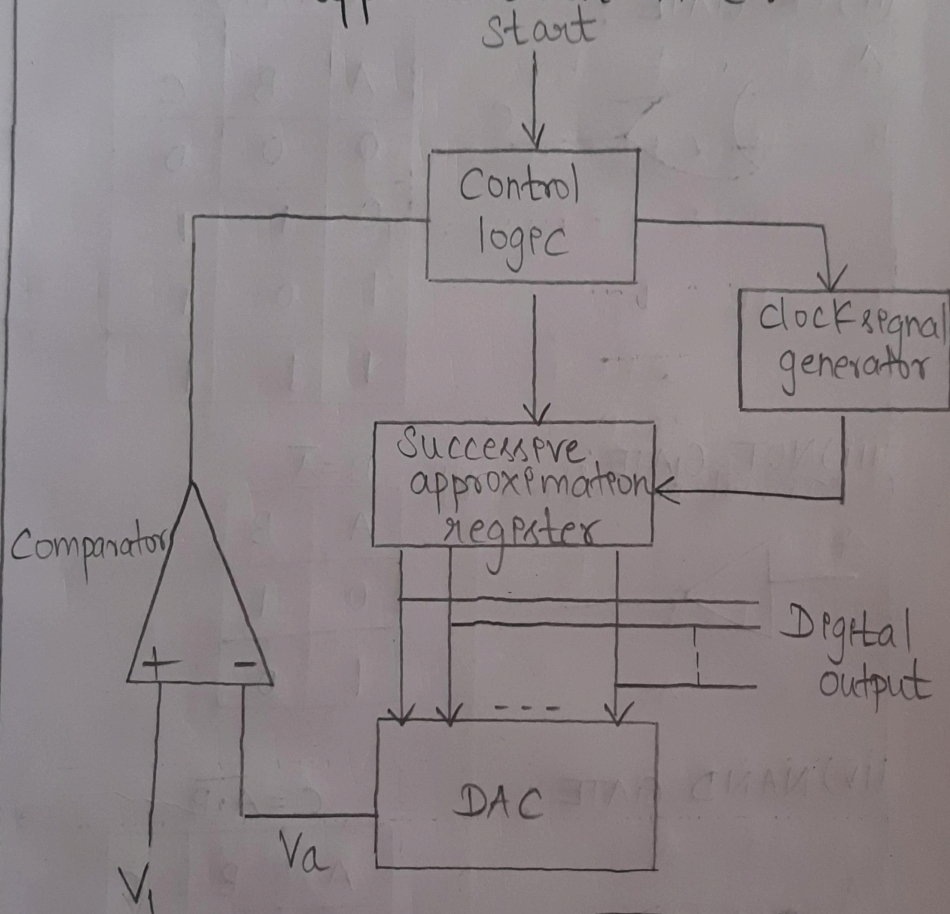 Start
Control
logic
Clock signal
generator
Successive
approximation
register
Comparator
+ -
Digital
output
DAC
Va
V1